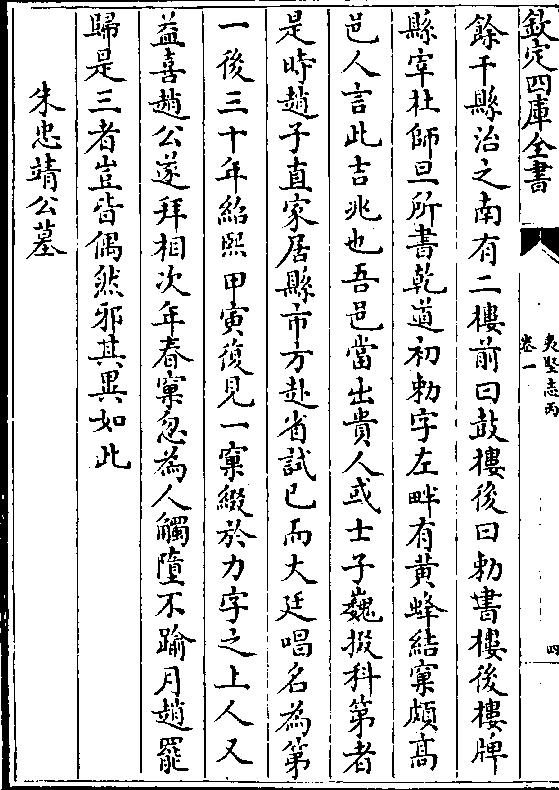 欽定四庫全書
夷堅志丙
卷一
四
餘干縣治之南有二樓前曰鼓樓後曰勅書樓後樓牌
縣宰杜師旦所書乾道初勅字左畔有黃蜂結窠頗髙
邑人言此吉兆也吾邑當出貴人或士子巍掇科第者
是時趙子直家居縣市方赴省試已而大廷唱名為第
一後三十年紹熙甲寅復見一窠綴於力字之上人又
益喜趙公遂拜相次年春窠忽為人觸墮不踰月趙罷
歸是三者豈皆偶然邪其異如此
朱忠靖公墓